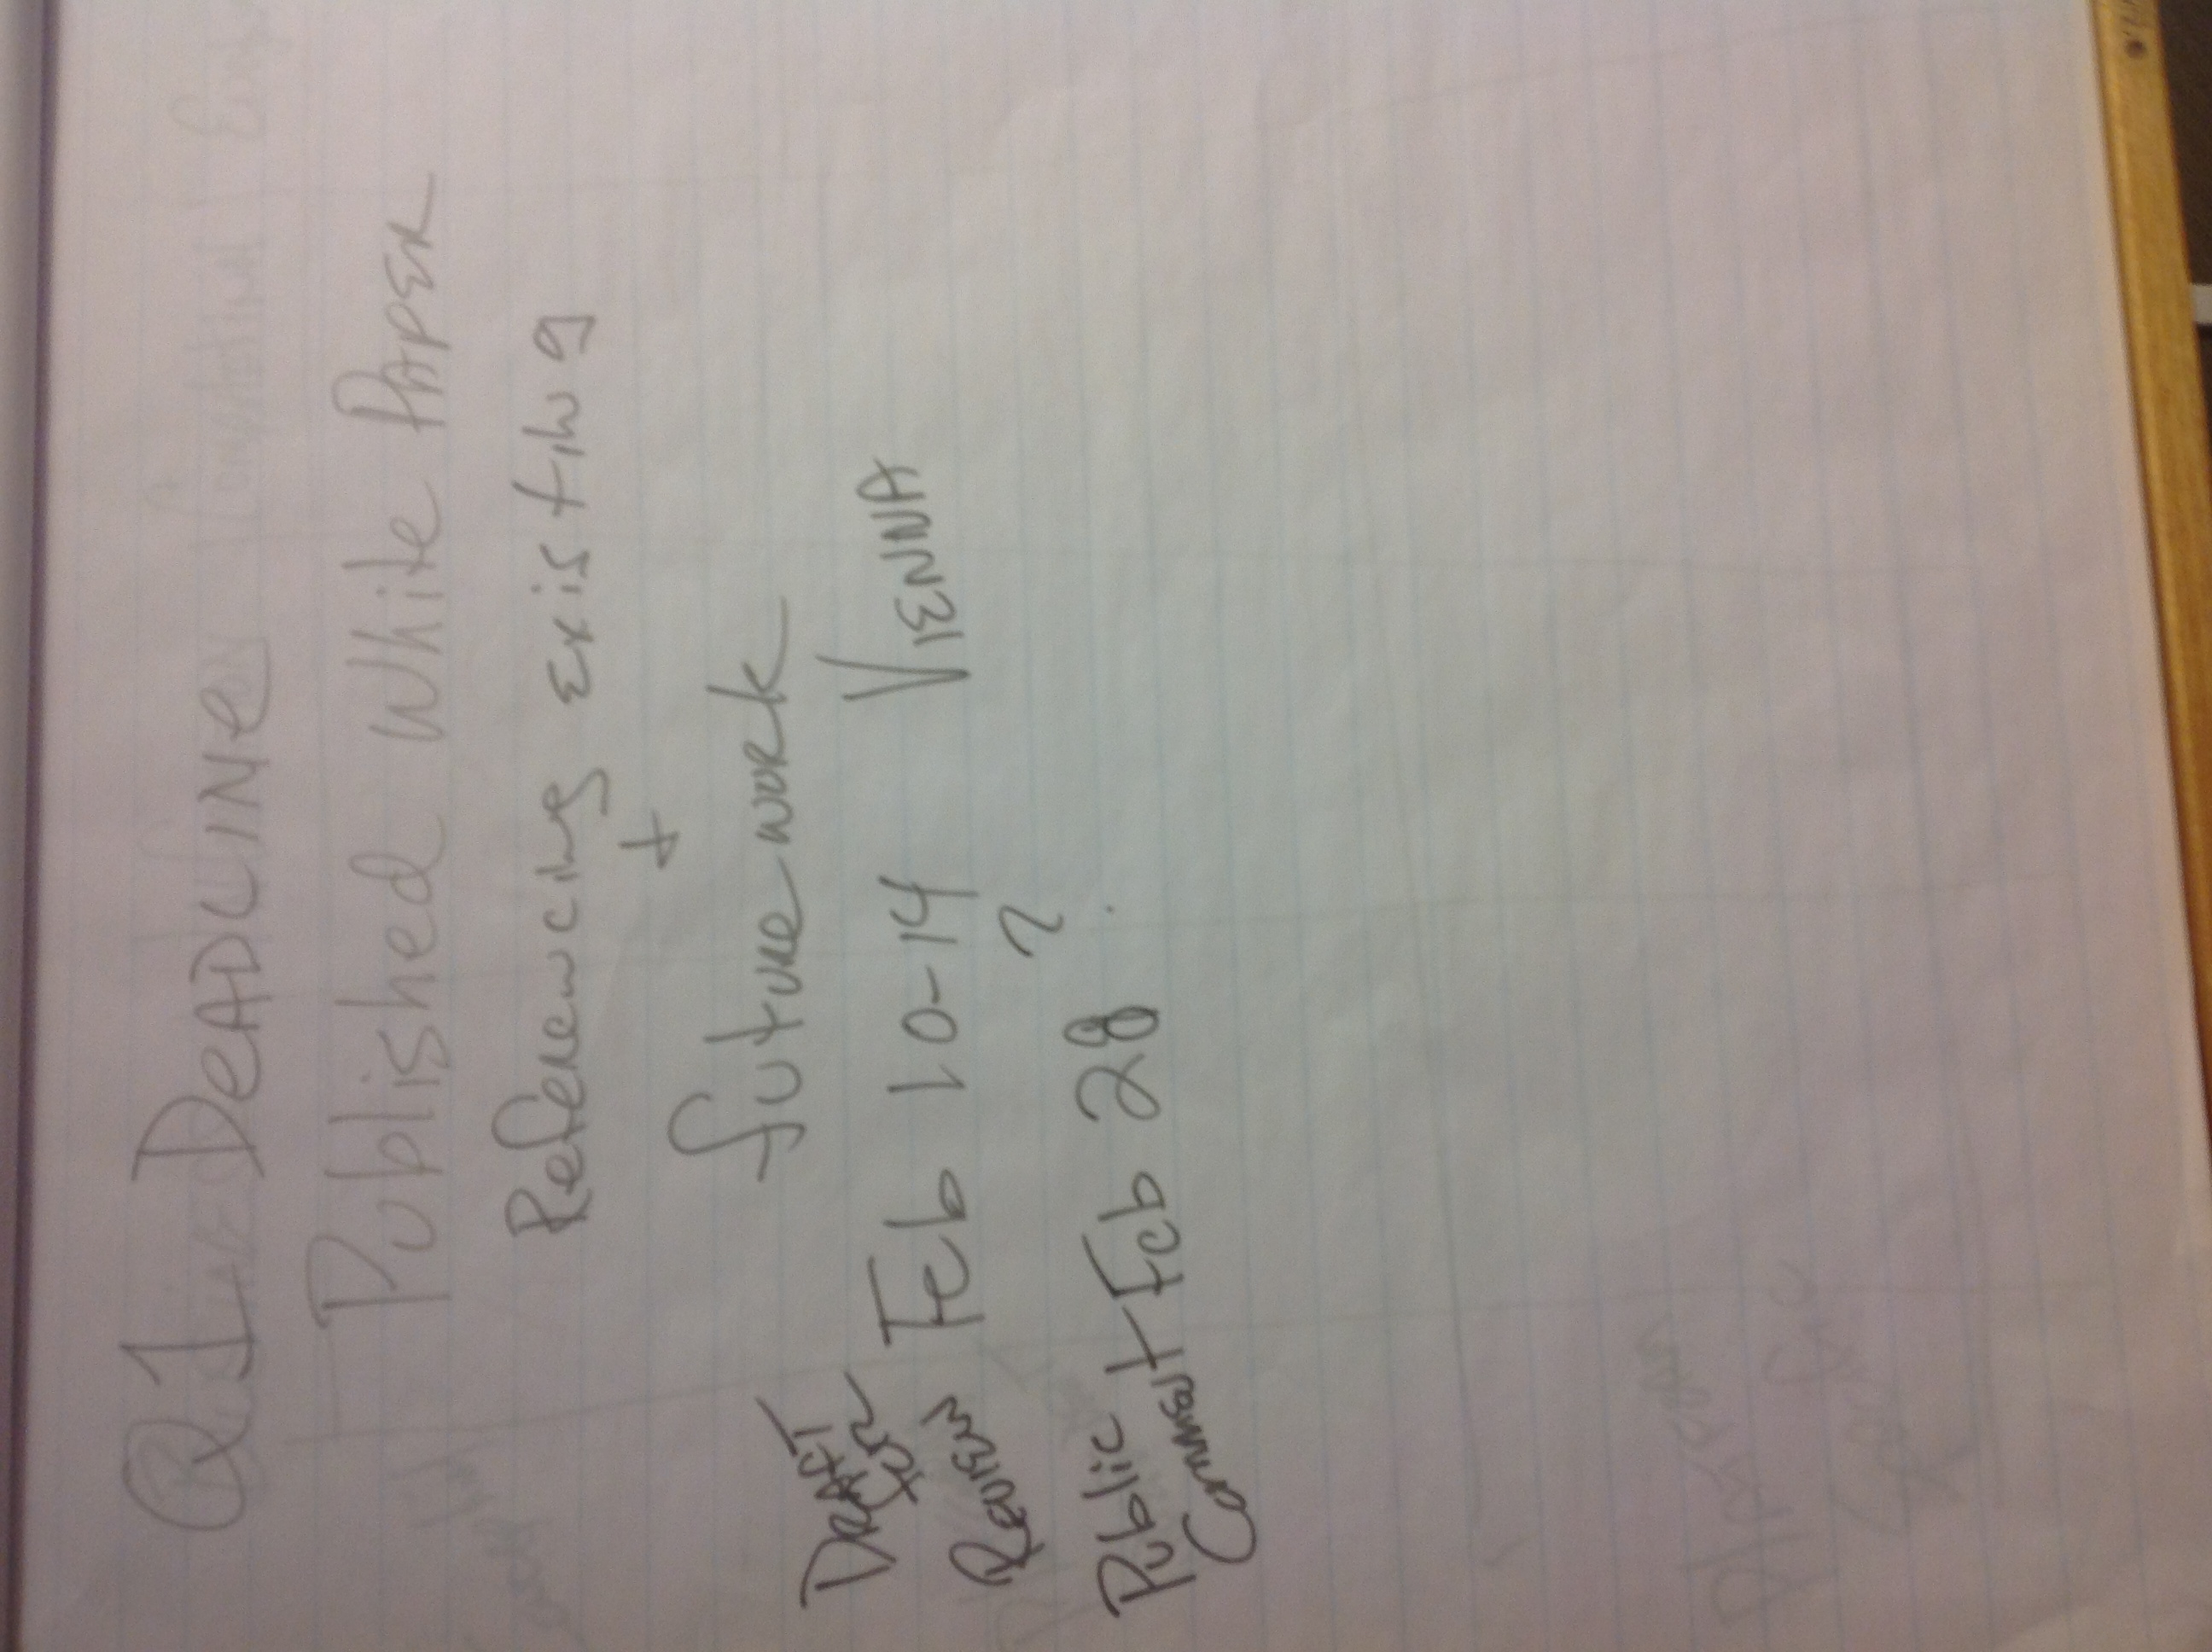 Q1 DEADLINE
Published White PAPER
Referencing Existing
+
future work
DRAFT FOR Review Feb 10-14 VIENNA
?
Public Comment Feb 28